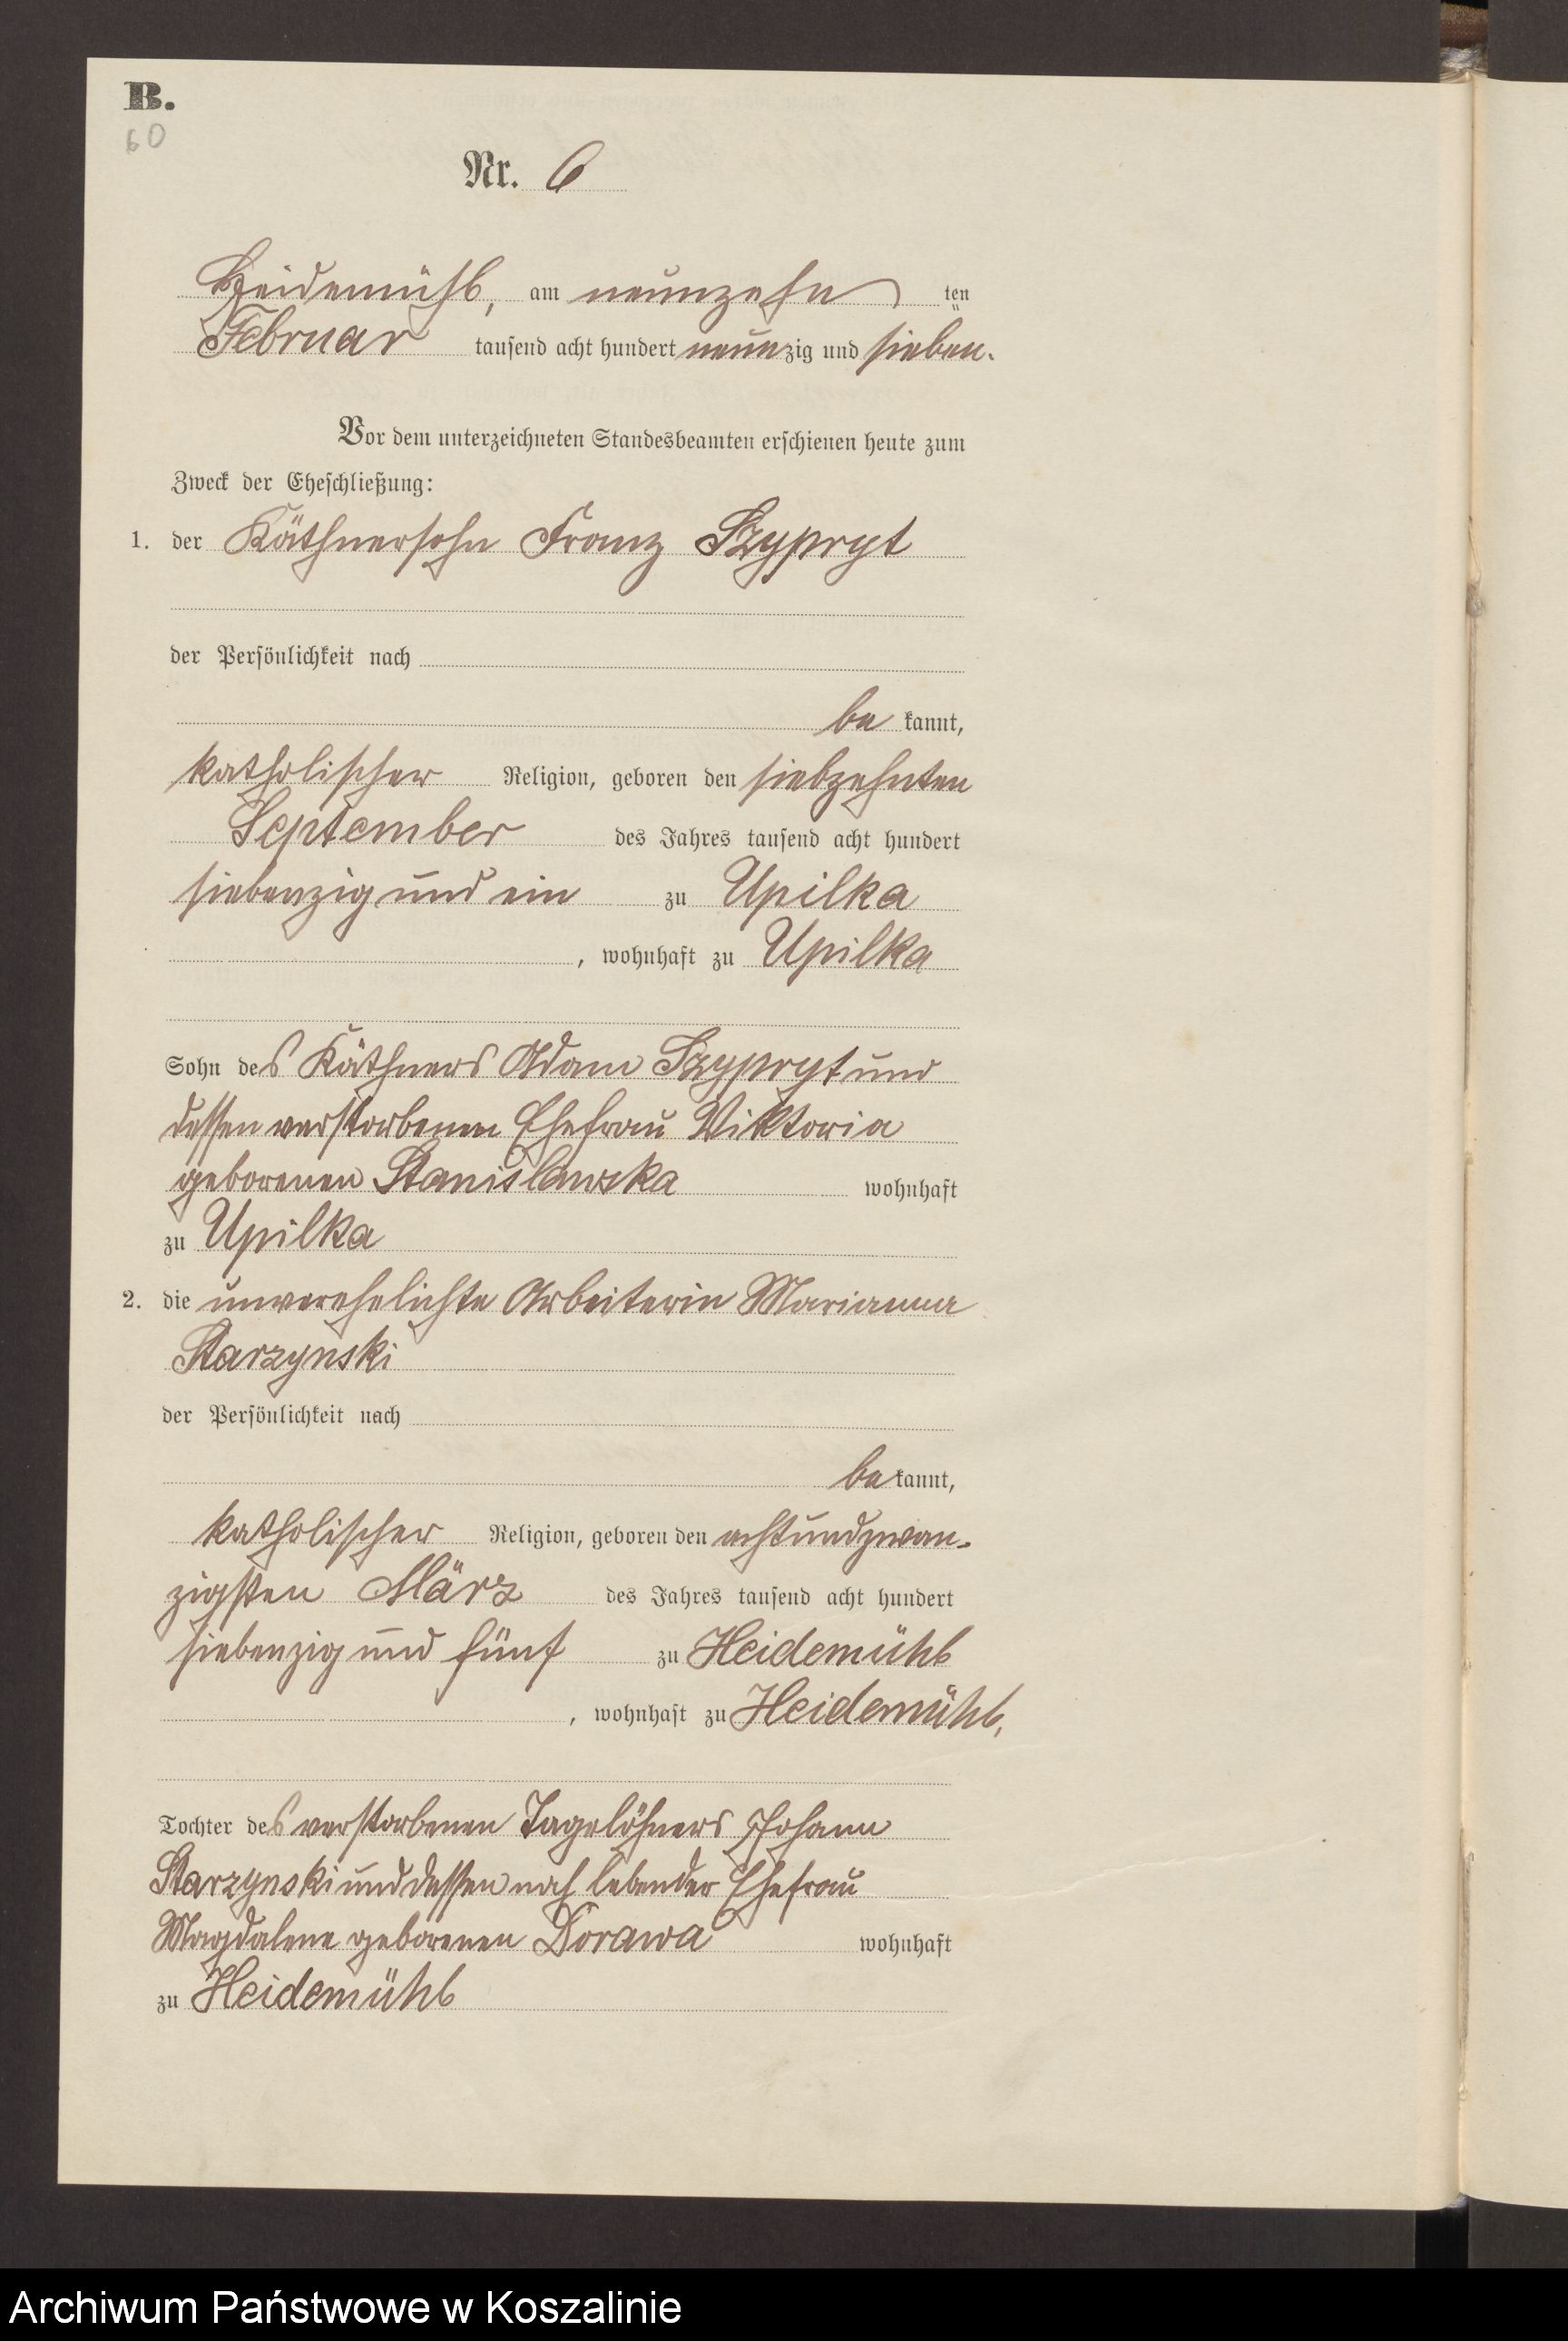 B.
60
Nr. 6
Heidemühl, am neunzehn ten
Februar tausend acht hundert neunzig und sieben.
Vor dem unterzeichneten Standesbeamten erschienen heute zum
Zweck der Eheschließung:
1. der Käthnersohn Franz Szypryt
der Persönlichkeit nach
be kannt,
katholischer Religion, geboren den siebzehnten
September des Jahres tausend acht hundert
siebenzig und ein zu Upilka
, wohnhaft zu Upilka
Sohn des Käthners Adam Szypryt und
dessen verstorbenen Ehefrau Viktoria
geborenen Stanislawska wohnhaft
zu Upilka
2. die unverehelichte Arbeiterin Marianna
Starzynski
der Persönlichkeit nach
be kannt,
katholischer Religion, geboren den achtundzwan-
zigsten März des Jahres tausend acht hundert
siebenzig und fünf zu Heidemühl
, wohnhaft zu Heidemühl,
Tochter des verstorbenen Tagelöhners Johann
Starzynski und dessen noch lebender Ehefrau
Magdalene geborenen Dorawa wohnhaft
zu Heidemühl
Archiwum Państwowe w Koszalinie